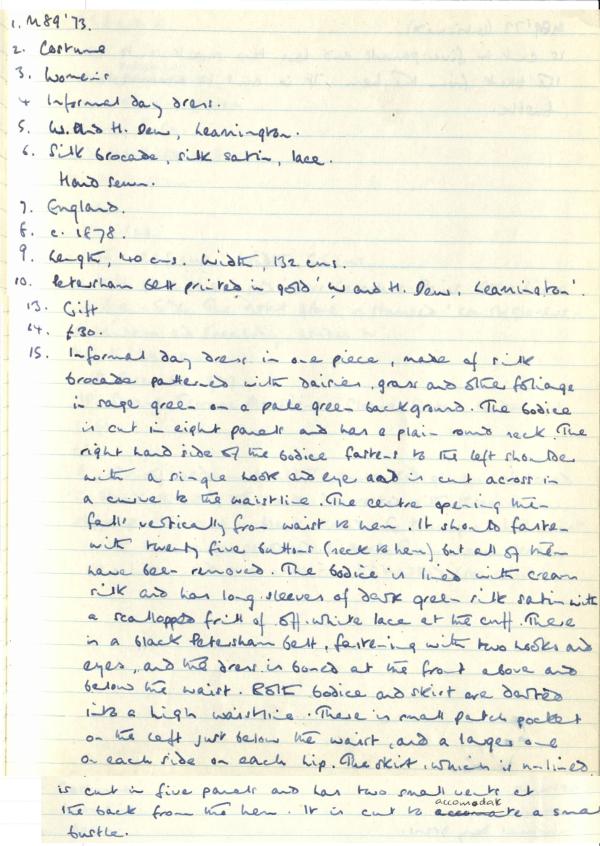 1. M89'73.
2. Costume
3. Women's
4. Informal day dress.
5. W. and H. Dew, Leamington.
6. Silk brocade, silk satin, lace.
Hand sewn.
7. England.
8. c. 1878.
9. Length, 140 cms. Width, 132 cms.
10. Petersham belt printed in gold 'W and H. Dew. Leamington'.
13. Gift
14. £30.
15. Informal day dress in one piece, made of silk
brocade patterned with daisies, grass and other foliage
in sage green on a pale green background. The bodice
is cut in eight panels and has a plain round neck. The
right hand side of the bodice fastens to the left shoulder
with a single hook and eye and is cut across in
a curve to the waistline. The centre opening then
falls vertically from waist to hem. It should fasten
with twenty five buttons (neck to hem) but all of them
have been removed. The bodice is lined with cream
silk and has long sleeves of dark green silk satin with
a scallopped frill of off-white lace at the cuff. There
is a black Petersham belt, fastening with two hooks and
eyes, and the dress is boned at the front above and
below the waist. Both bodice and skirt are darted
into a high waistline. There is small patch pocket
on the left just below the waist, and a larger one
on each side on each hip. The skirt, which is unlined
is cut in five panels and has two small vents at
the back from the hem. It is cut to accomodate a small
bustle.